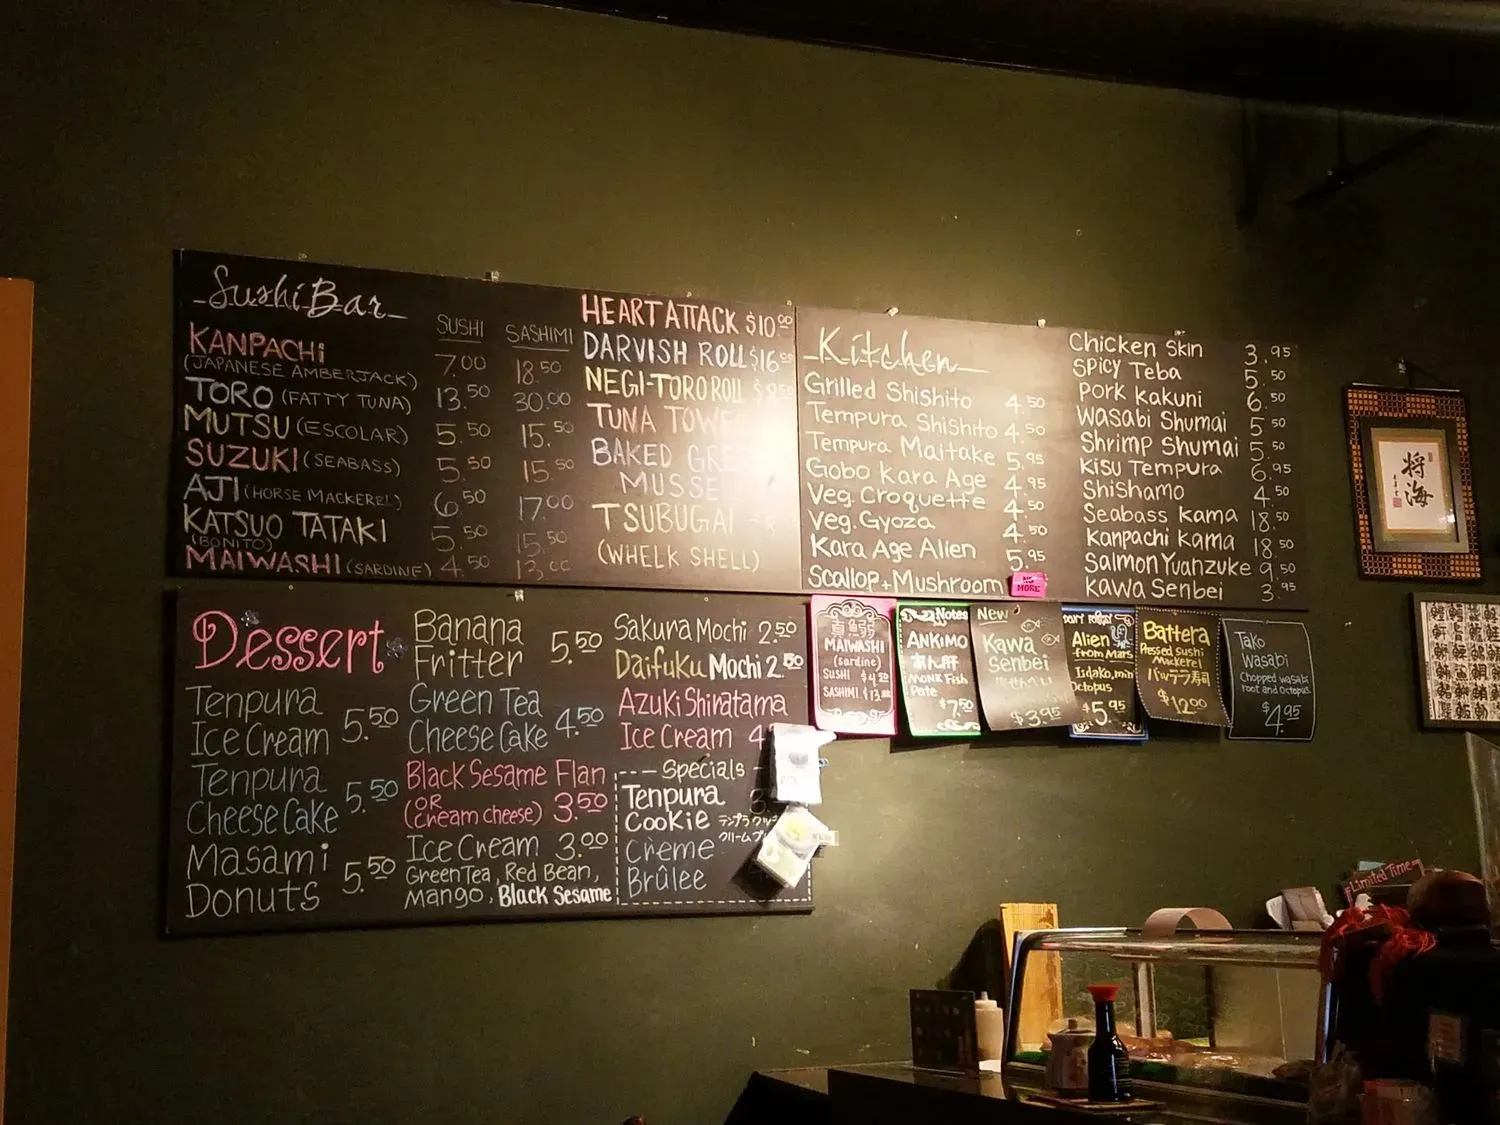 Sushi Bar
SUSHI SASHIMI
KANPACHI 7.00 18.50
(JAPANESE AMBERJACK)
TORO (FATTY TUNA) 13.50 30.00
MUTSU (ESCOLAR) 5.50 15.50
SUZUKI (SEABASS) 5.50 15.50
AJI (HORSE MACKEREL) 6.50 17.00
KATSUO TATAKI 5.50 15.50
(BONITO)
MAIWASHI (SARDINE) 4.50 13.00
HEART ATTACK $10.00
DARVISH ROLL $16.00
NEGI-TORO ROLL
TUNA
BAKED
TSUBUGAI
(WHELK SHELL)
Kitchen
Grilled Shishito 4.50
Tempura Shishito 4.50
Tempura Maitake 5.95
Gobo Kara Age 4.95
Veg. Croquette 4.50
Veg. Gyoza 4.50
Kara Age Alien 5.95
Scallop + Mushroom
NO MORE
Chicken Skin 3.95
Spicy Teba 5.50
Pork Kakuni 6.50
Wasabi Shumai 5.50
Shrimp Shumai 5.50
Kisu Tempura 6.95
Shishamo 4.50
Seabass Kama 18.50
Kanpachi Kama 18.50
Salmon Yuanzuke 9.50
Kawa Senbei 3.95
Dessert
Tenpura
Ice Cream 5.50
Tenpura
Cheese Cake 5.50
Masami
Donuts 5.50
Banana
Fritter 5.50
Green Tea
Cheese Cake 4.50
Black Sesame Flan
(OR
cream cheese) 3.50
Ice Cream 3.00
Green Tea, Red Bean,
Mango, Black Sesame
Sakura Mochi 2.50
Daifuku Mochi 2.50
Azuki Shiratama
Ice Cream 4
Specials
Tenpura
Cookie
Crème
Brûlee
真鰯
MAIWASHI
(sardine)
SUSHI $4.50
SASHIMI $13.00
Notes
ANKIMO
あん肝
MONK Fish
Pate
$7.50
New
Kawa
Senbei
$3.95
Alien
from Mars
Octopus
$5.95
Battera
Pressed sushi
Mackerel
バッテラ寿司
$12.00
Tako
Wasabi
Chopped wasabi
root and octopus.
$4.95
将海
Limited Time